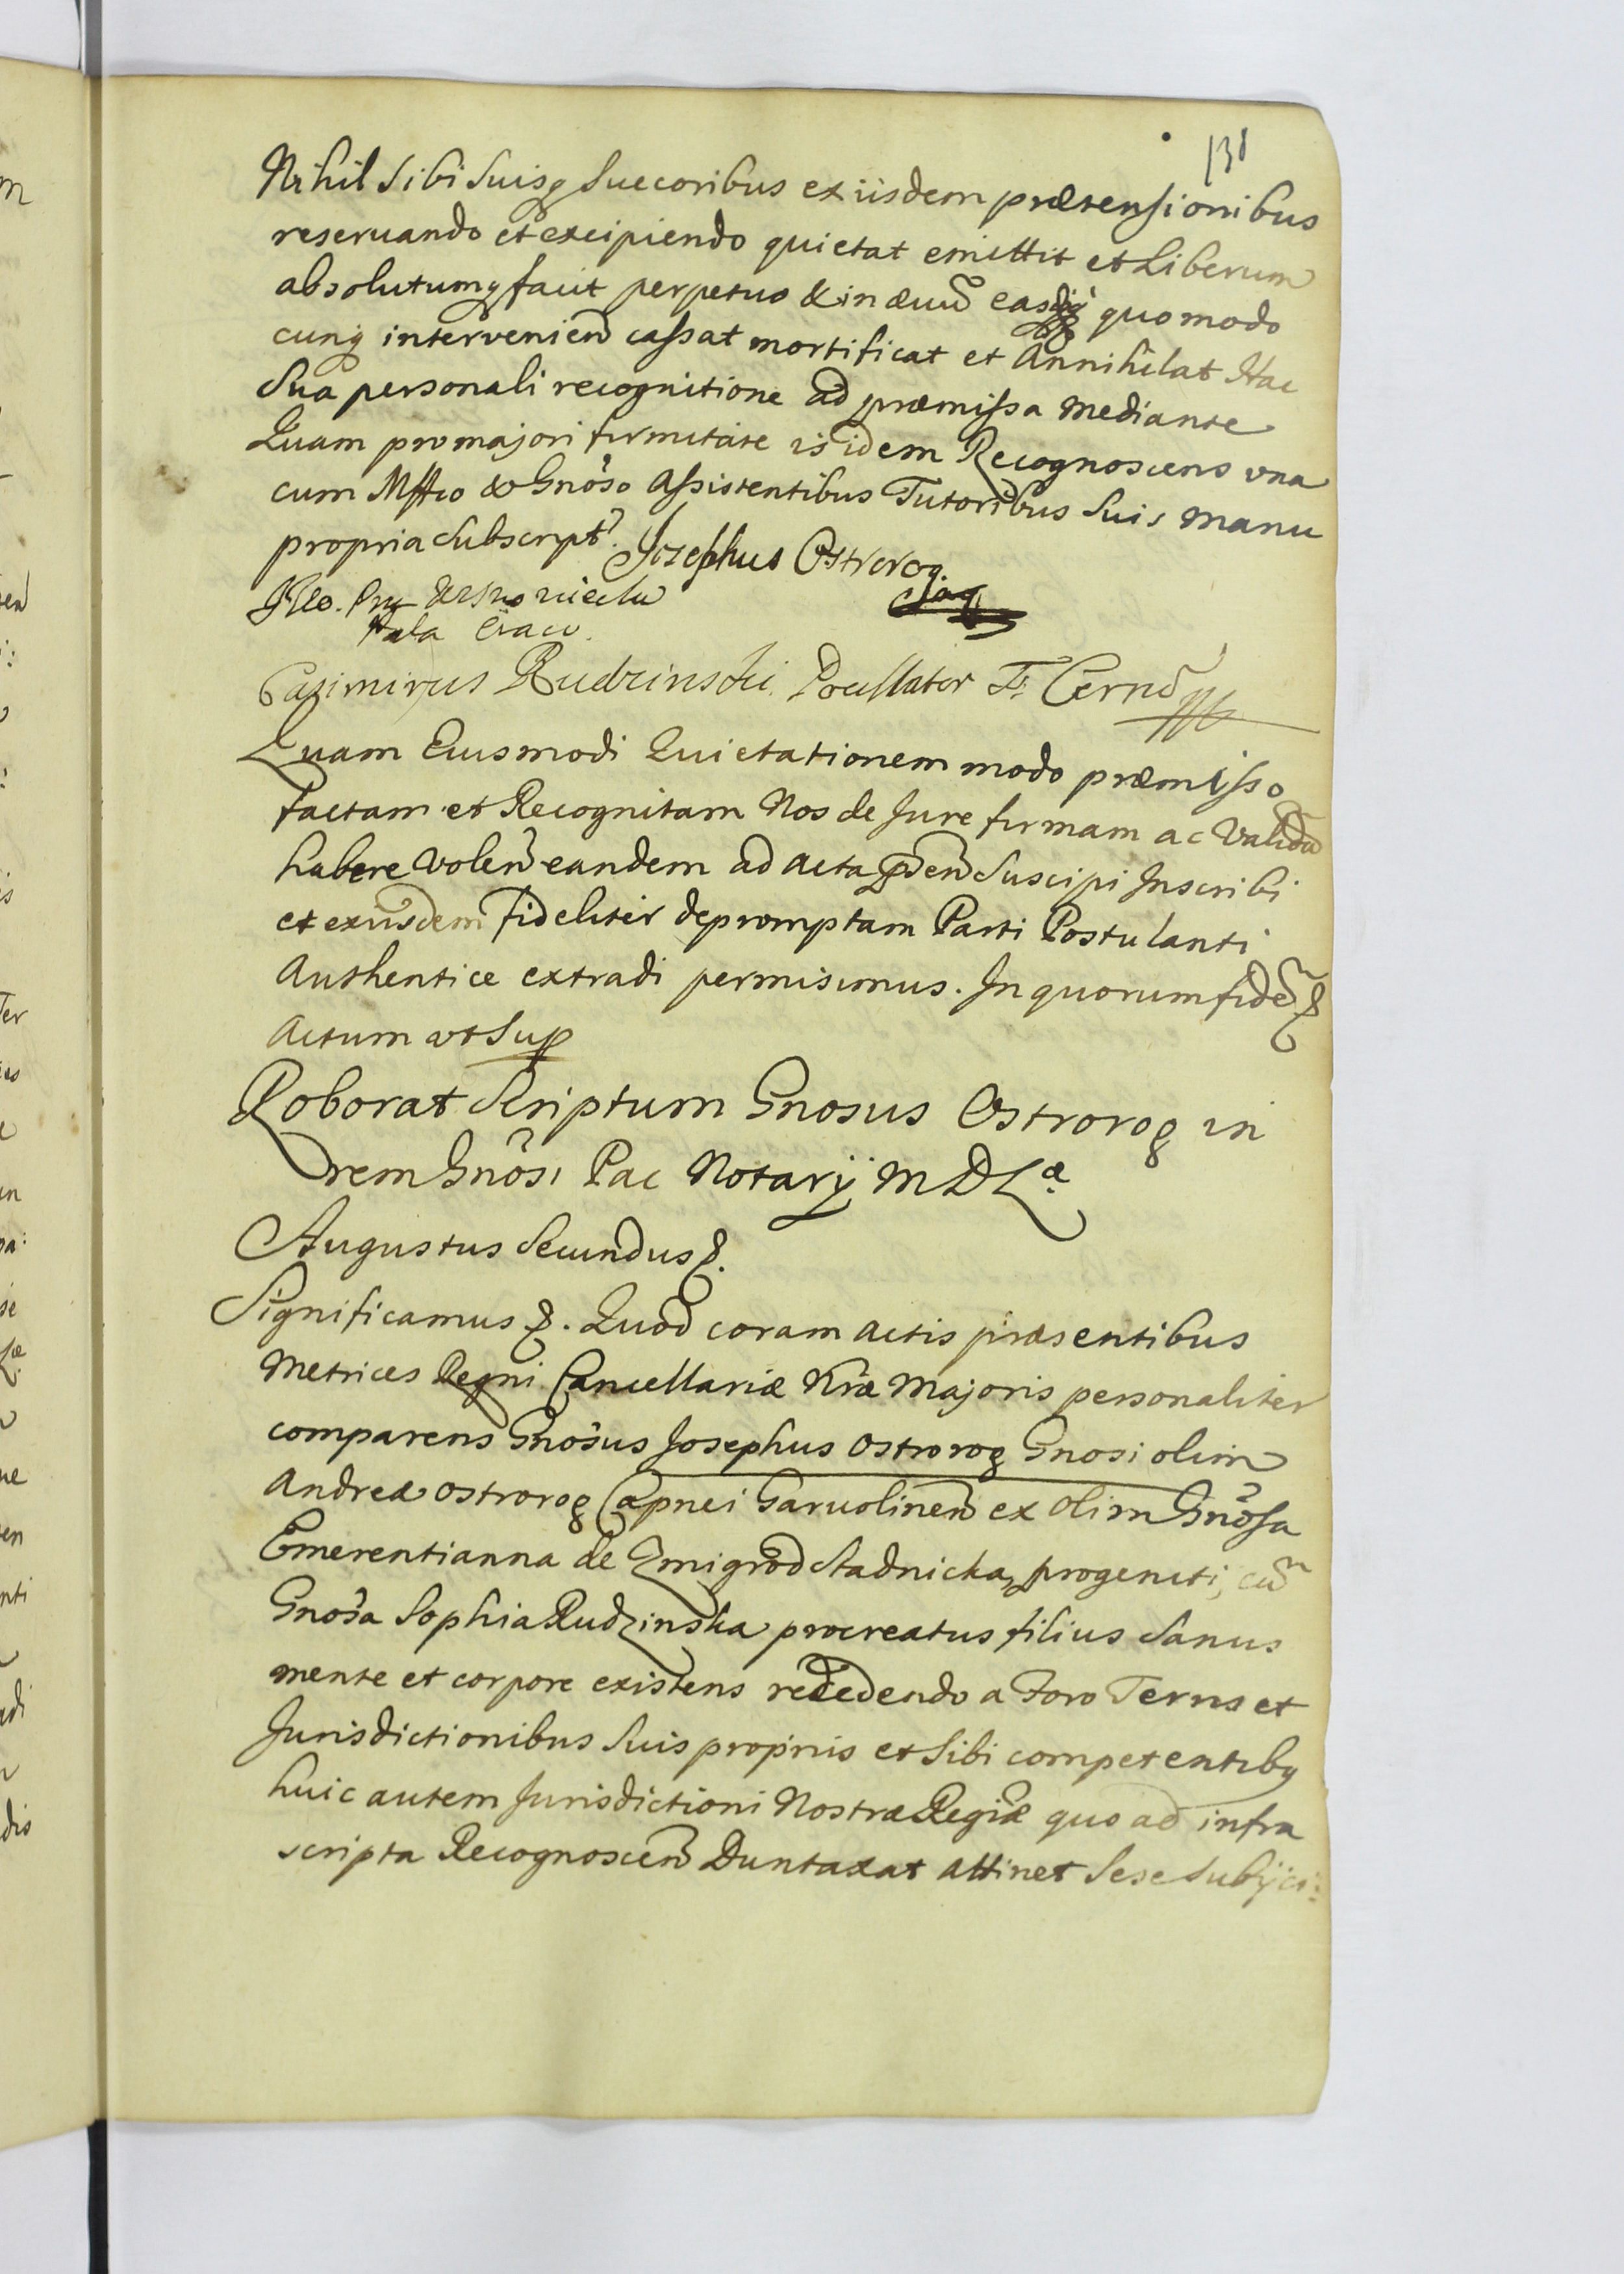 138
Nihil Sibi Suisq Suecoribus ex iisdem prætensionibus
reseruando et excipiendo quietat emittit et Liberum
absolutumq facit perpetuo & in ævũ easq quomodo
cunq intervenien̄ cassat mortificat et Annihilat Hac
Sua personali recognitione ad præmissa mediante
Quam pro majori firmitate is idem Recognoscens vna
cum Mffco & Gnõso Assistentibus Tutoribus Suis manu
propria Subscript.
Josephus Ostrorog
Casimirus Rudzinski
Quam Eiusmodi Quietationem modo præmisso
factam et Recognitam Nos de Jure firmam ac Validã
habere Volen̄ eandem ad acta pñsen̄ Suscipi Inscribi
et ex iisdem fideliter depromptam Parti Postulanti
Authentice extradi permisimus. In quorum fidẽ &
Actum vt Sup
Roborat Scriptum Gnosus Ostrorog in
rem Gnõsi Pac Notarÿ M D Læ
Augustus Secundus &.
Significamus &. Quod coram Actis præsentibus
Metrices Regni Cancellariæ Nræ Majoris personaliter
comparens Gnõsus Josephus Ostrorog Gnosi olim
Andreæ Ostrorog Capnei Garuolinen̄ ex olim Gnõsa
Emerentianna de Zmigrod Stadnicka progeniti, cũ
Gnõsa Sophia Rudzinska procreatus filius Sanus
mente et corpore existens recedendo a Foro Terris et
Jurisdictionibus Suis proprijs et Sibi competentibq
huic autem Jurisdictioni Nostræ Regiæ quo ad infra
scripta Recognoscen̄ Duntaxat attinet Sese Subijci: